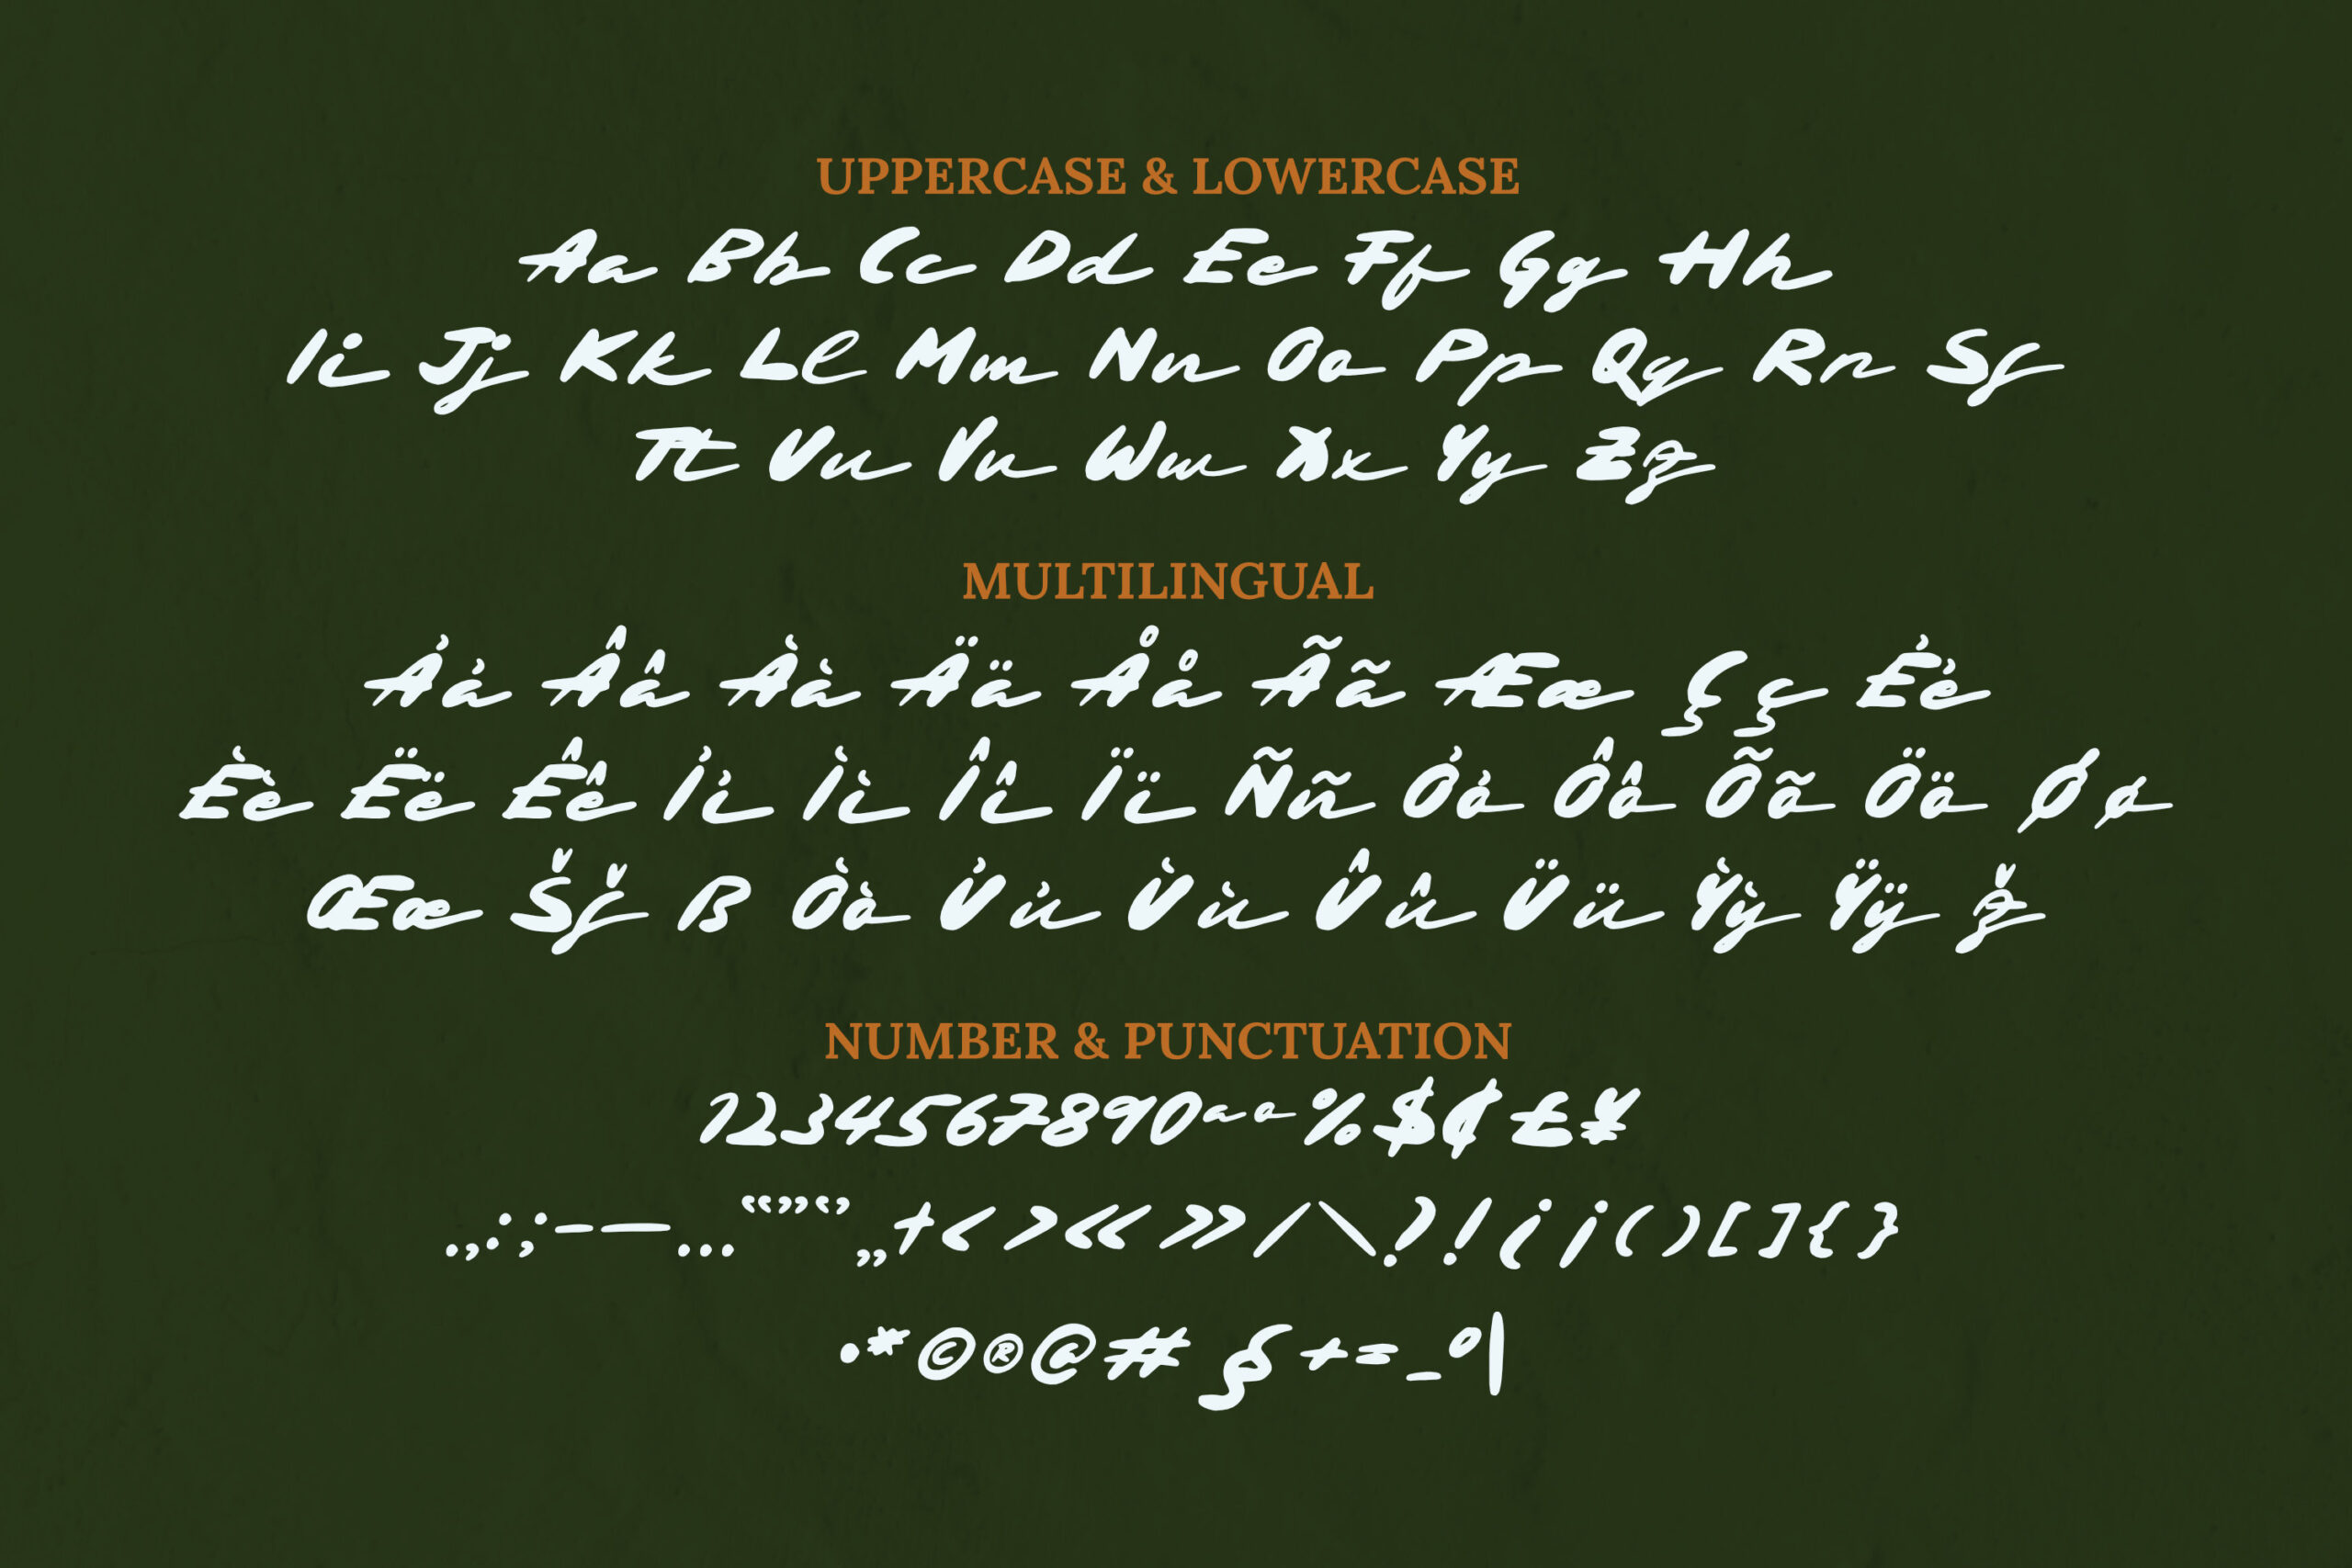 UPPERCASE & LOWERCASE
Aa Bb Cc Dd Ee Ff Gg Hh
Ii Jj Kk Ll Mm Nn Oo Pp Qq Rr Ss
Tt Uu Vv Ww Xx Yy Zz
MULTILINGUAL
Áá Ââ Àà Ää Åå Ãã Ææ Çç Éé
Èè Ëë Êê Íí Ìì Îî Ïï Ññ Óó Ôô Õõ Öö Øø
Œœ Šš ß Òò Úú Ùù Ûû Üü Ỳỳ Ÿÿ ž
NUMBER & PUNCTUATION
1234567890ªº%$¢£¥
.,:;–—...“”’‘’„†‹›«»/\?!¿¡()[]{}
•*©®@#§+=_°|